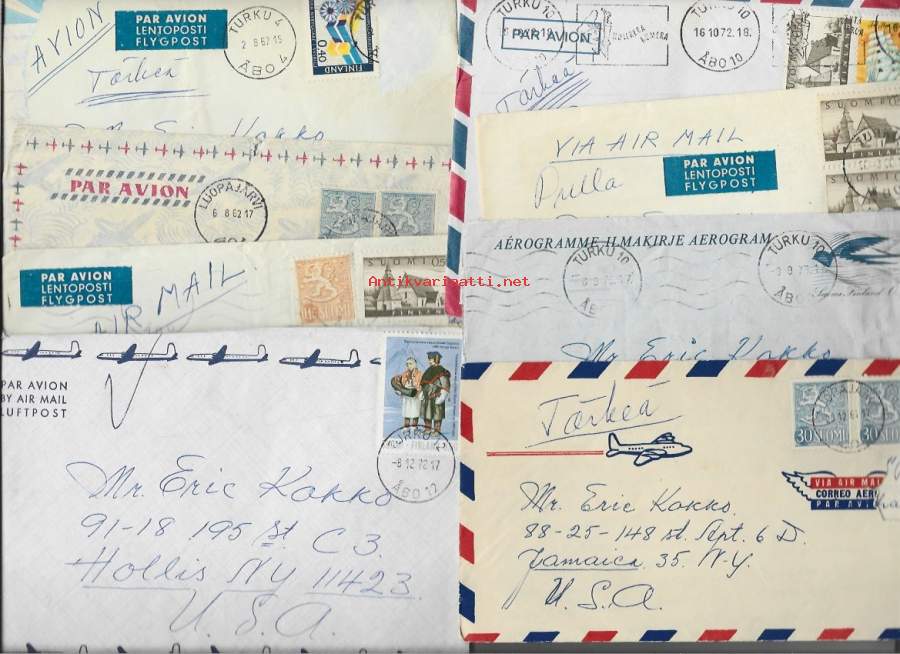 AVION
PAR AVION
LENTOPOSTI
FLYGPOST
TURKU 4
2 8 62.15
ÅBO 4
0,40
FINLAND
Tärkeä
Eric Kokko
PAR AVION
LUOPAJÄRVI
6 8 62.17
PAR AVION
LENTOPOSTI
FLYGPOST
AIR MAIL
SUOMI
Antikvariaatti.net
PAR AVION
BY AIR MAIL
LUFTPOST
TURKU 12
-8.12.72.17
ÅBO 12
Mr. Eric Kokko
91-18 195 st C3.
Hollis NY 11423
U.S.A.
TURKU 10
PAR AVION
TURKU 10
16.10.72.18.
ÅBO 10
Tärkeä
VIA AIR MAIL
Pulla
PAR AVION
LENTOPOSTI
FLYGPOST
SUOMI
FINLAND
AÉROGRAMME ILMAKIRJE AEROGRAM
TURKU 10
ÅBO
TURKU 10
ÅBO
Mr Eric Kokko
Tärkeä
LUOPAJÄRVI
30 SUOMI
30
VIA AIR MAIL
CORREO AÉR
PAR AVIO
Mr. Eric Kokko.
88-25-148 st. Apt. 6 D.
Jamaica 35. N.Y.
U.S.A.